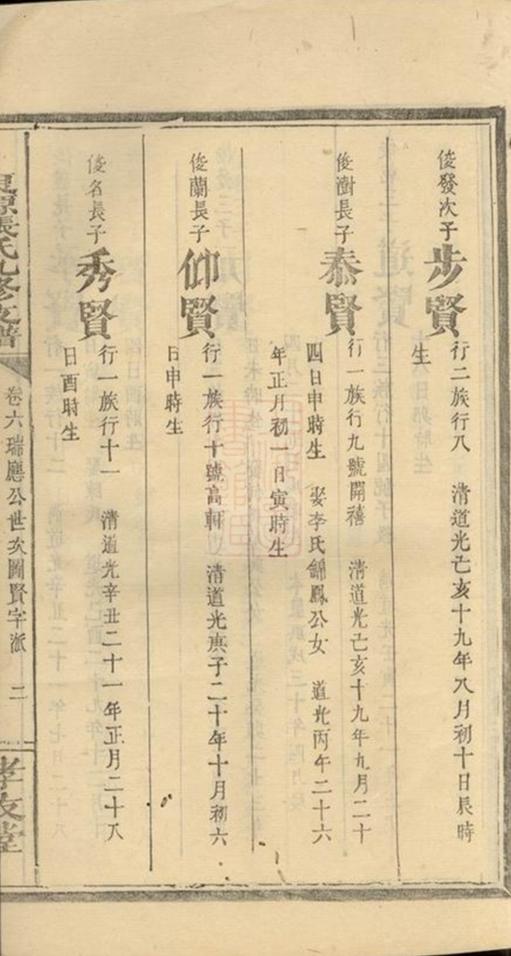 俊發次子
步賢
行二族行八 清道光己亥十九年八月初十日辰時
生
俊澍長子
泰賢
行一族行九號開禧 清道光己亥十九年九月二十
四日申時生 娶李氏錦鳳公女 道光丙午二十六
年正月初一日寅時生
俊蘭長子
仰賢
行一族行十號高軒 清道光庚子二十年十月初六
日申時生
俊名長子
秀賢
行一族行十一 清道光辛丑二十一年正月二十八
日酉時生
張氏九修支譜
卷六瑞應公世次圖賢字派 二
孝友堂